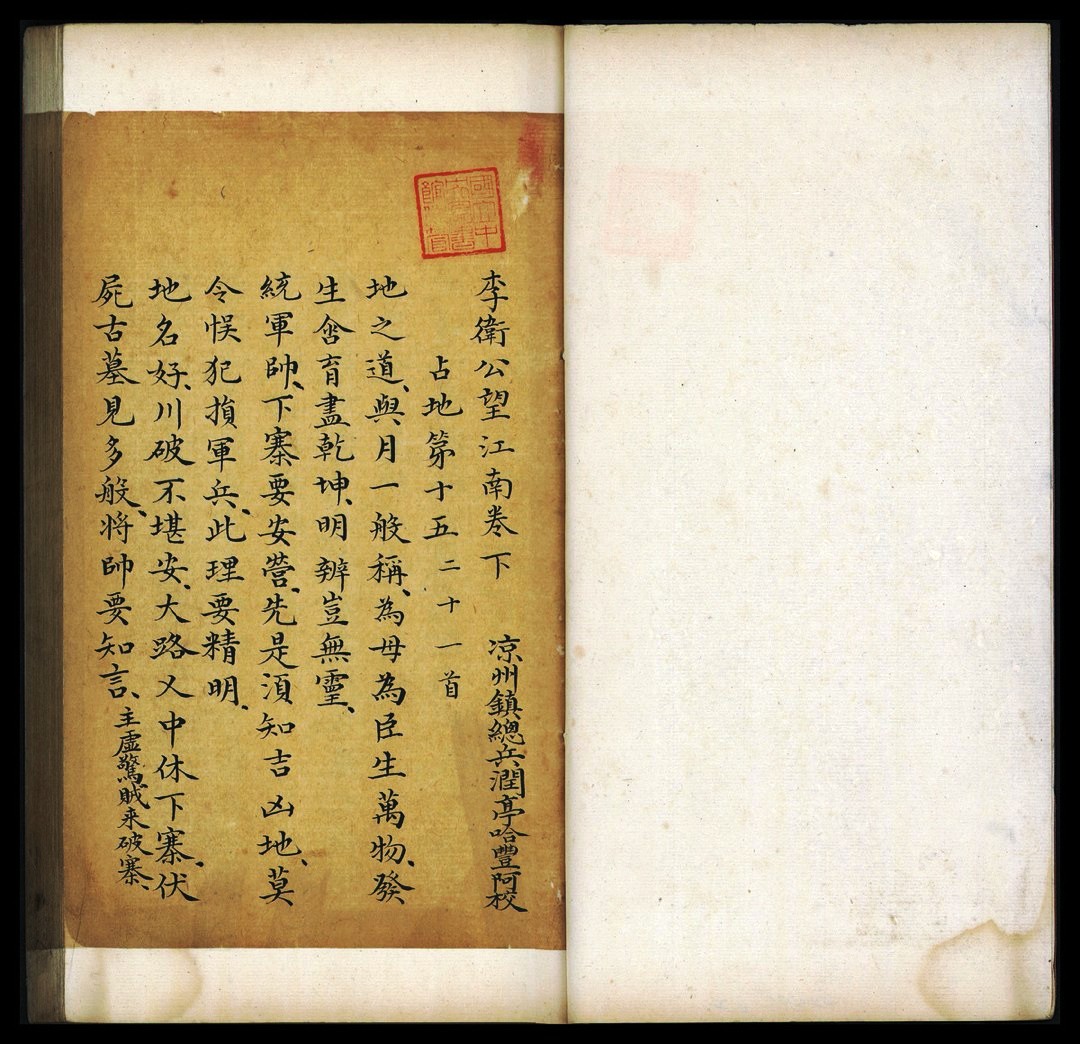 李衛公望江南卷下　涼州鎮總兵潤亭哈豐阿校
占地第十五二十一首
地之道、與月一般稱、為母為臣生萬物、發
生含育盡乾坤、明辨豈無靈、
統軍帥、下寨要安營、先是須知吉凶地、莫
令悮犯損軍兵、此理要精明、
地名好、川破不堪安、大路乂中休下寨、伏
屍古墓見多般、将帥要知言、主虛驚賊来破寨、